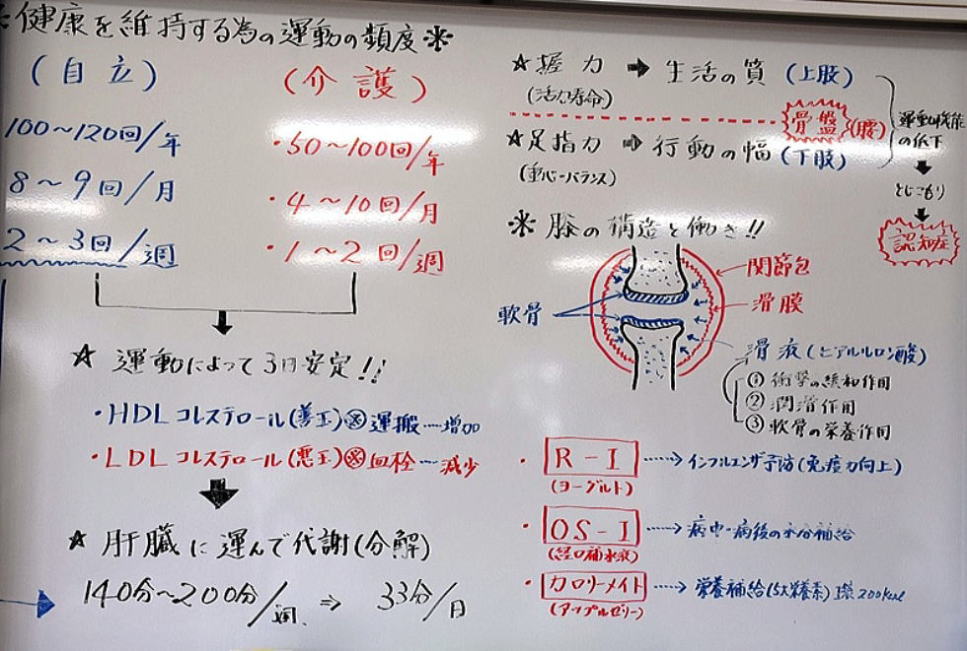 ※健康を維持する為の運動の頻度※
(自立)
100〜120回/年
8〜9回/月
2〜3回/週
(介護)
・50〜100回/年
・4〜10回/月
・1〜2回/週
☆運動によって3日安定!!
・HDLコレステロール(善玉)※運搬…増加
・LDLコレステロール(悪玉)※血栓…減少
☆肝臓に運んで代謝(分解)
140分〜200分/週 ⇒ 33分/日
☆握力 ➡ 生活の質(上肢)
(活力寿命)
骨盤(腰)
☆足指力 ➡ 行動の幅(下肢)
(重心-バランス)
運動機能
の低下
とじこもり
認知症
※膝の構造と働き!!
関節包
滑膜
軟骨
滑液(ヒアルルロン酸)
① 衝撃の緩和作用
② 潤滑作用
③ 軟骨の栄養作用
・R-I……→インフルエンザ予防(免疫力向上)
(ヨーグルト)
・OS-I……→病中・病後の水分補給
(経口補水液)
・カロリーメイト……→栄養補給(5大栄養素) 200kcal
(アップルゼリー)